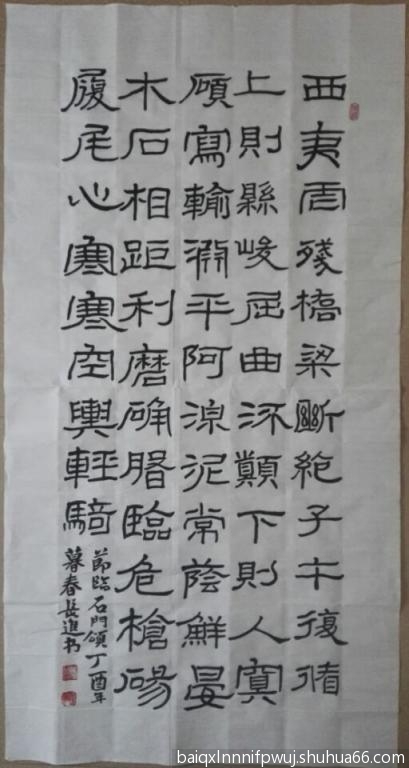 西夷虐殘橋梁斷絶子午復循
上則縣峻屈曲流顛下則人寞
頎寫輸淵平阿湶泥常蔭鮮晏
木石相距利磨确臨危槍碭
履尾心寒寒空輿輕騎
節臨石門頌丁酉年
暮春進书
baiqxlnnnifpwuj.shuhua66.com